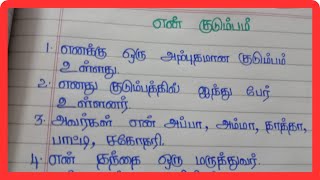 என் குடும்பம்
1. எனக்கு ஒரு அற்புதமான குடும்பம்
உள்ளது.
2. எனது குடும்பத்தில் ஐந்து பேர்
உள்ளனர்.
3. அவர்கள் என் அப்பா, அம்மா, தாத்தா,
பாட்டி, சகோதரி.
4. என் தந்தை ஒரு மருத்துவர்.